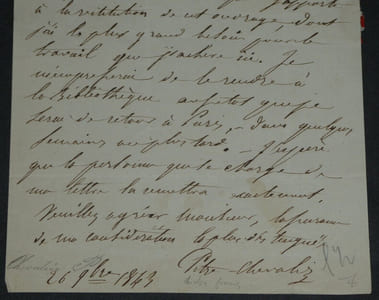 à la restitution de cet ouvrage, dont
j'ai le plus grand besoin pour le
travail que j'achève ici. Je
m'empresserai de le rendre à
la Bibliothèque aussitôt que je
serai de retour à Paris, dans quelques
semaines au plus tard. J'espère
que la personne que je charge de
ma lettre la remettra exactement.
Veuillez agréer Monsieur, l'assurance
de ma considération la plus distinguée
Pitre Chevalier
26 9bre 1843
Chevalier